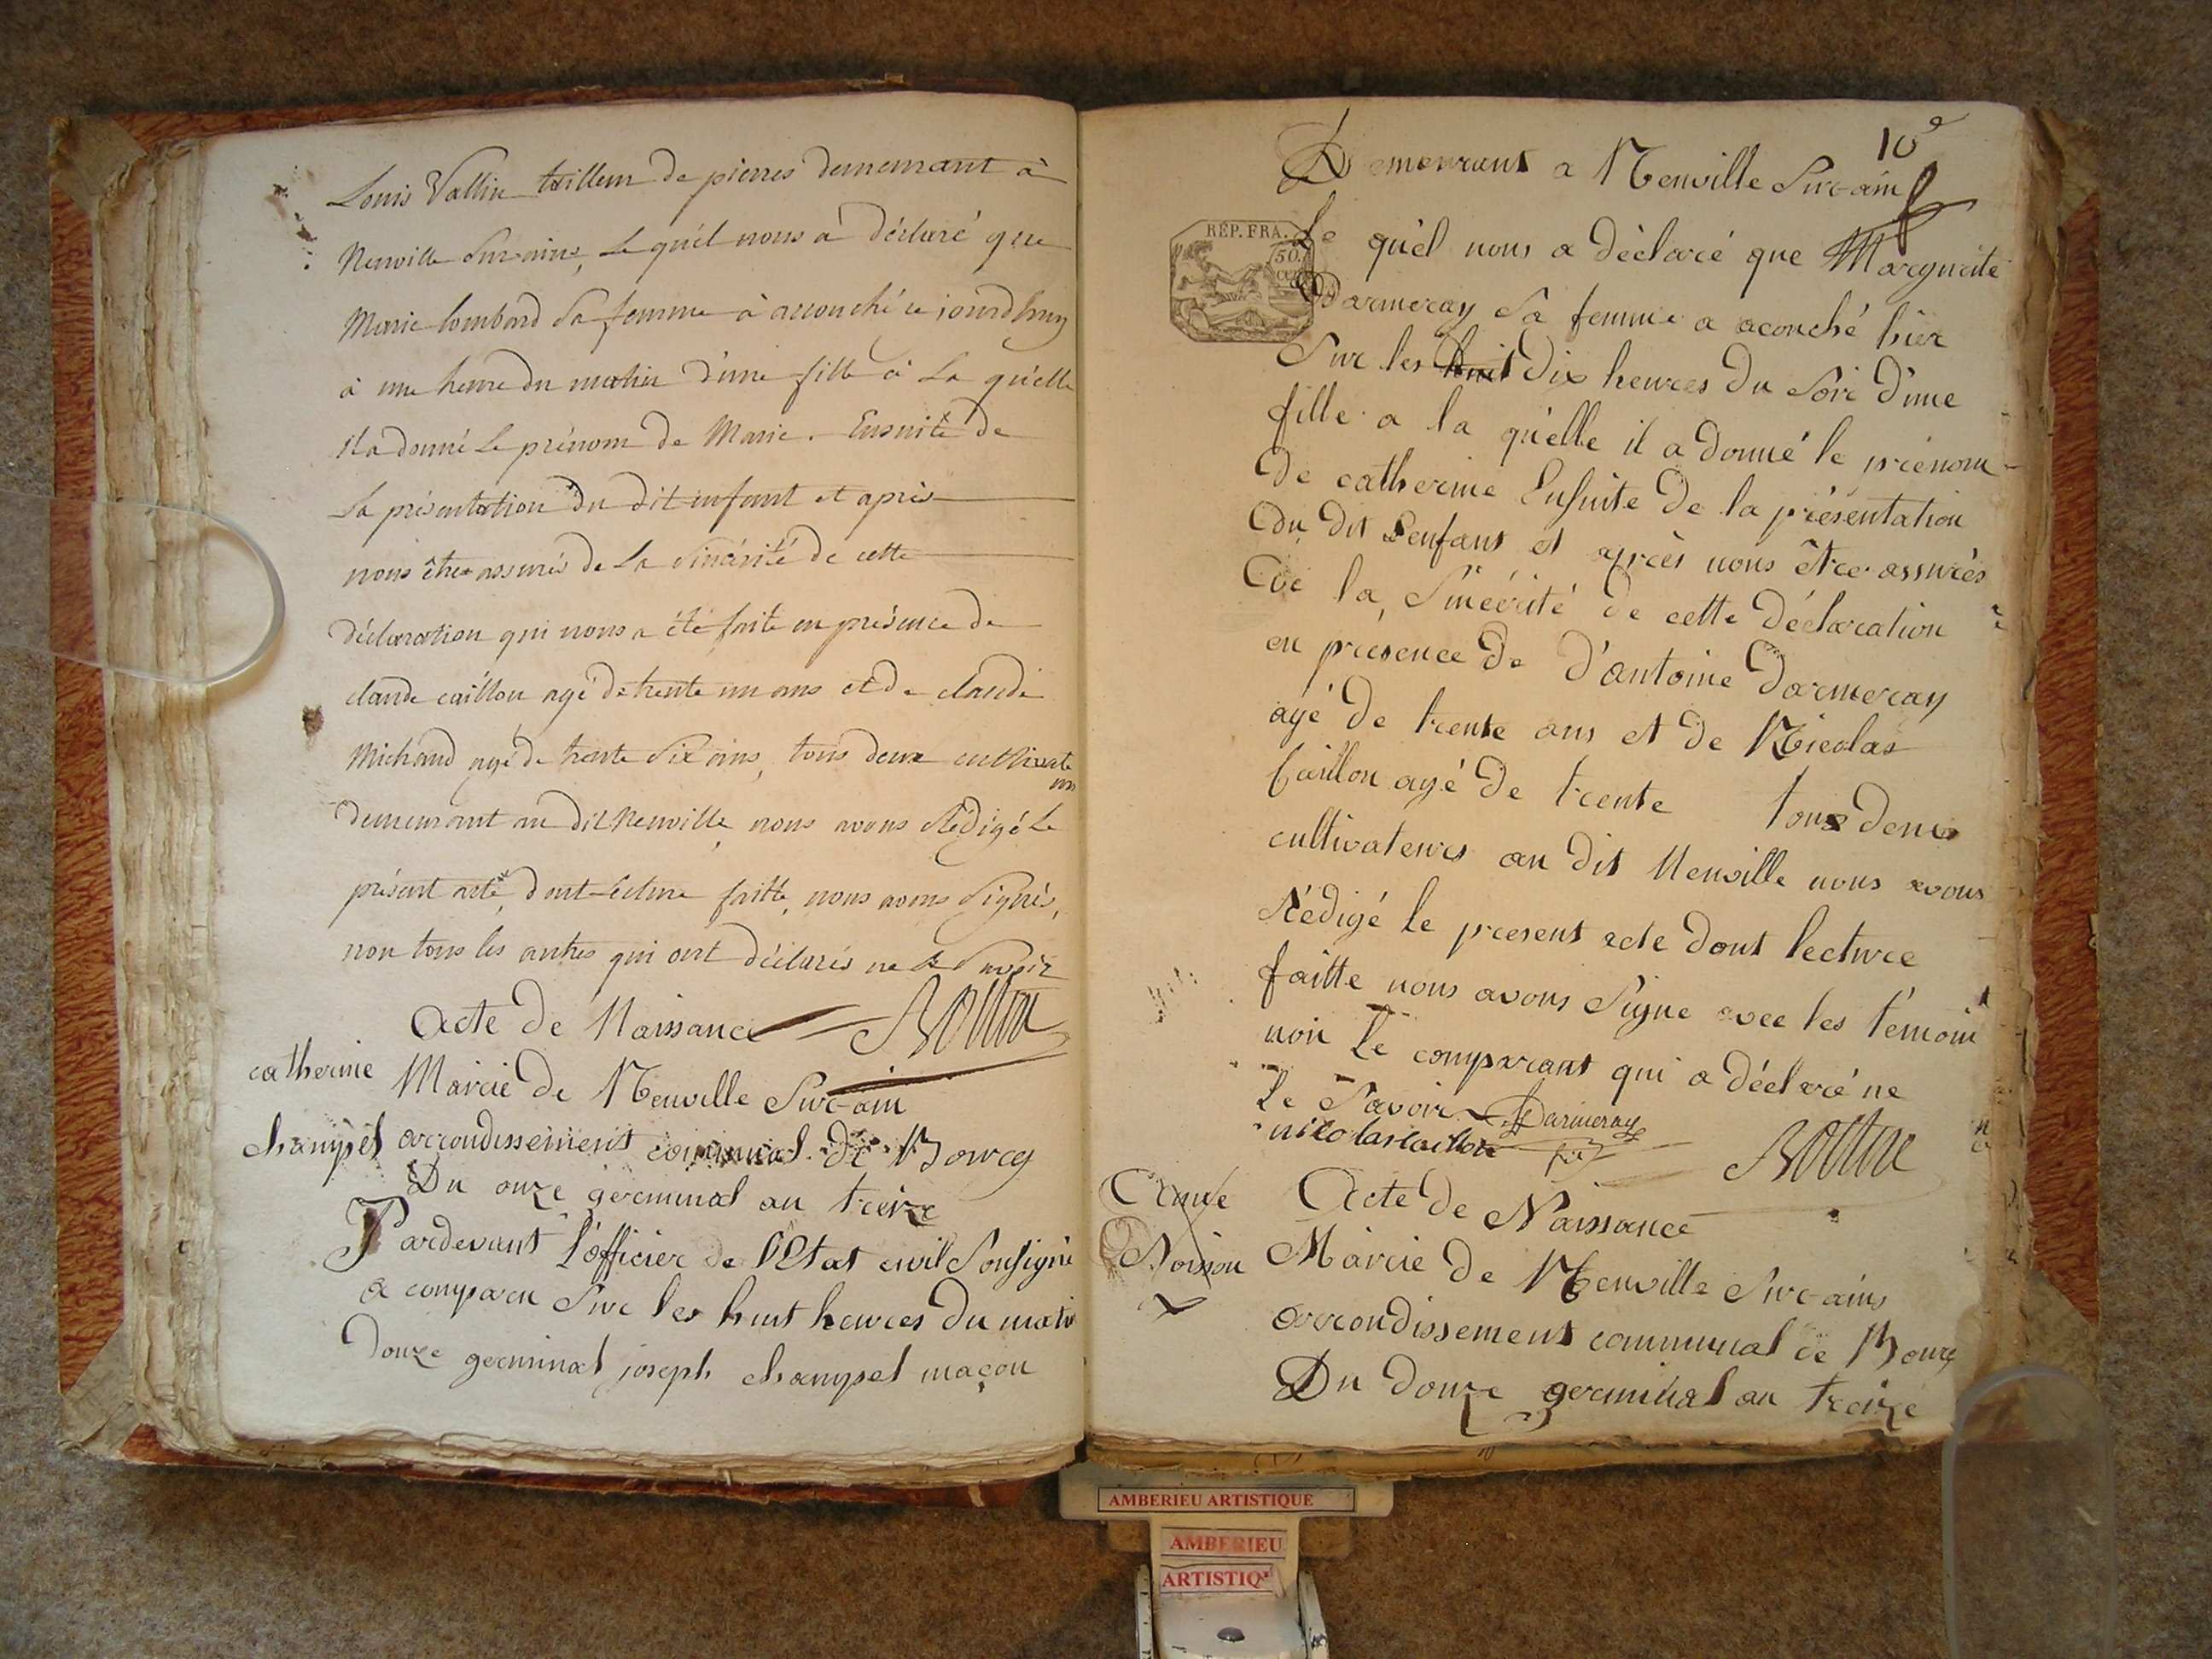 Louis Vallin tailleur de pierres demeurant à
Neuville Sur ains, Le quél nous à déclaré que
Marie lombard Sa femme à accouché ce jourdhuy
à une heure du matin d'une fille à La qu'elle
il a donné Le prénom de Marie. Ensuite de
La présentation du dit enfant et après
nous être assurés de La Sincérité de cette
déclaration qui nous a été faite en présence de
claude caillon agé de trente un ans et de claude
Michaud agé de trente Six ans, tous deux cultivate
urs
demeurant au dit Neuville, nous avons Rédigé Le
présent acte, dont lecture faitte, nous avons Signés,
non tous les autres qui ont déclarés ne le Savoir
Acte de Naissance
catherine
champel
Mairie de Neuville Sur-ain
arrondissement communal de Bourg
Du onze germinal an treize
Pardevant L'officier de l'Etat civil Sousigné
a comparu Sur les huit heures du matin
douze germinal joseph champel maçon
10e
Demeurant a Neuville Sur-ain
RÉP. FRA.
50
Le quèl nous a dèclaré que Margueritte
Darmeray Sa femme a aconché hier
Sur les huit dix heures du Soir d'une
fille a la quèlle il a donné le prénom
De catherine Ensuite de la présentation
Du dit Lenfant et après nous être assurés
De la Sinérité de cette déclaration
en présence de d'antoine Darmeray
agé de trente ans et de Nicolas
Caillon agé de trente tous deux
cultivateurs au dit Neuville nous avons
Rédigé le present acte dont lecture
faitte nous avons Signe avec les témoin
non Le comparant qui a déclaré ne
Le Savoir Darmeray
nicolas caillon
Acte de Naissance
Mairie de Neuville Sur-ains
arrondissement communal de Bourg
Du douze germinal an treize
AMBERIEU ARTISTIQUE
AMBERIEU
ARTISTIQ